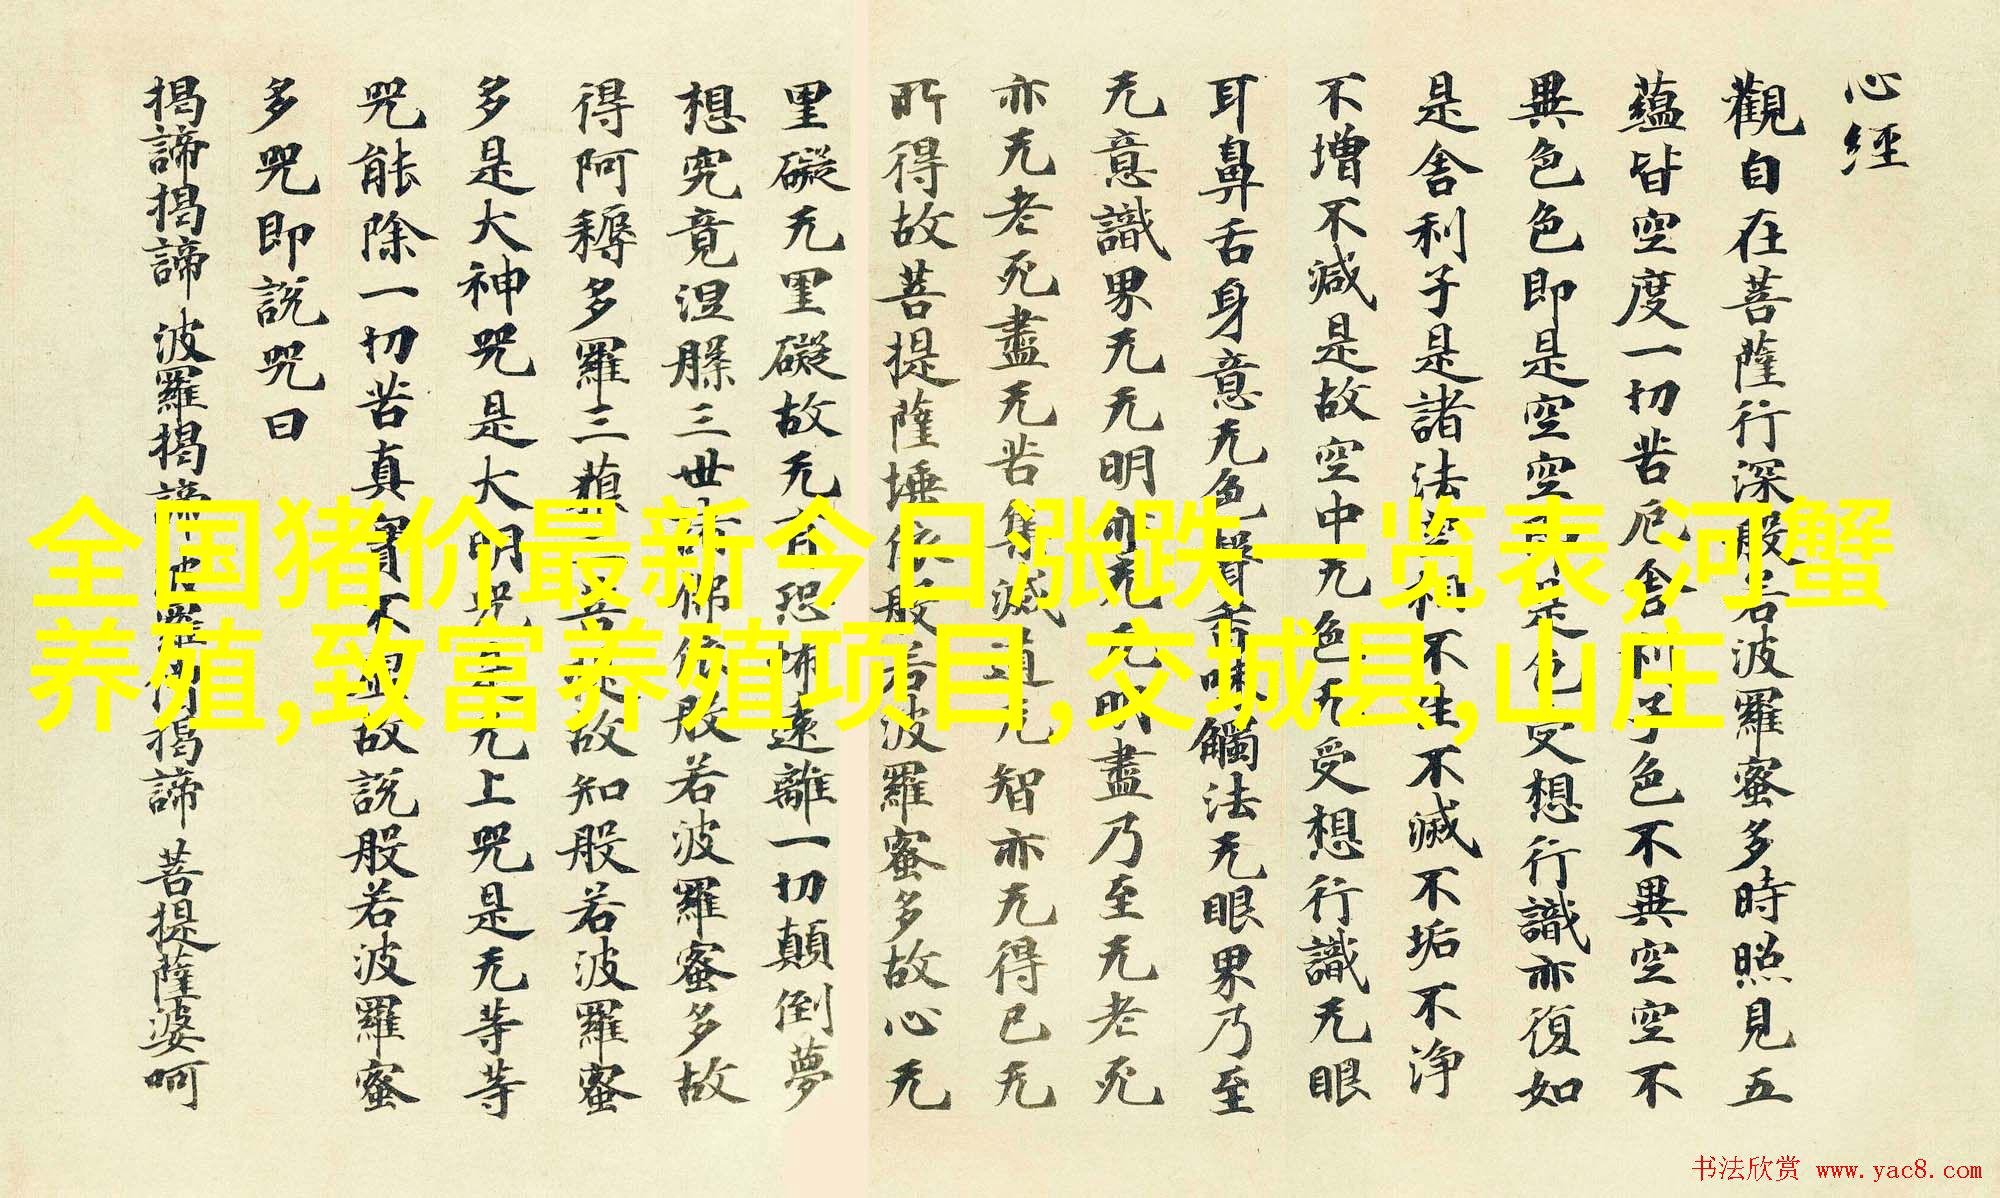 心經
觀自在菩薩行深般若波羅蜜多時照見五
蘊皆空度一切苦厄舍利子色不異空空不
異色色即是空空即是色受想行識亦復如
是舍利子是諸法空相不生不滅不垢不净
不增不减是故空中无色无受想行識无眼
耳鼻舌身意无色聲香味觸法无眼界乃至
无意識界无无明亦无无明盡乃至无老死
亦无老死盡无苦集滅道无智亦无得已无
所得故菩提薩埵依般若波羅蜜多故心无
罣礙无罣礙故无有恐怖遠離一切顛倒夢
想究竟涅槃三世諸佛依般若波羅蜜多故
得阿耨多羅三藐三菩提故知般若波羅蜜
多是大神咒是大明咒是无上咒是无等等
咒能除一切苦真實不虛故說般若波羅蜜
多咒即說咒曰
揭諦揭諦 波羅揭諦 波羅僧揭諦 菩提薩婆呵
全国猪价最新今日涨跌一览表,河蟹
养殖,致富养殖项目,交城县,山庄
书法欣赏 www.yac8.com